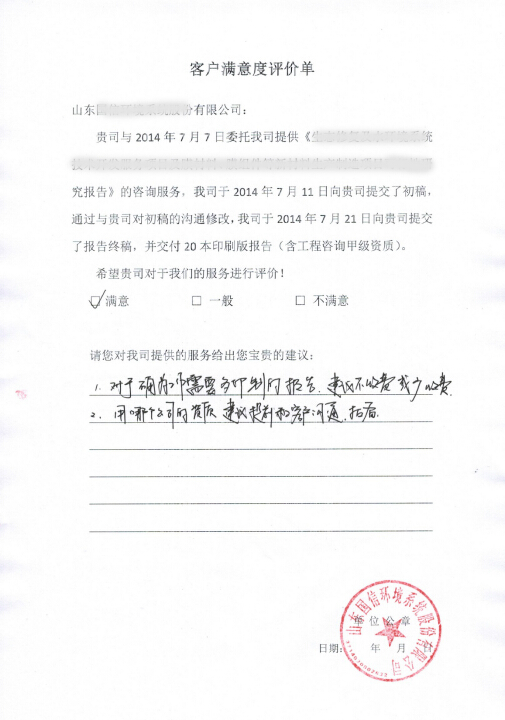 客户满意度评价单
山东国信环境系统股份有限公司:
贵司与 2014 年 7 月 7 日委托我司提供《
究报告》的咨询服务，我司于 2014 年 7 月 11 日向贵司提交了初稿,
通过与贵司对初稿的沟通修改, 我司于 2014 年 7 月 21 日向贵司提交
了报告终稿，并交付 20 本印刷版报告（含工程咨询甲级资质）。
希望贵司对于我们的服务进行评价！
☑ 满意 □ 一般 □ 不满意
请您对我司提供的服务给出您宝贵的建议:
1、对于确为工作需要多印制的报告、建议不收费或少收费.
2、用哪个公司的资质, 建议提前和客户沟通,
单位公章
山东国信环境系统股份有限公司
日期: 年 月 日